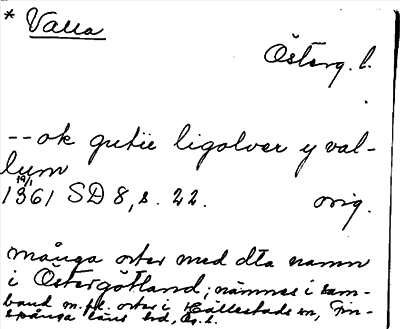 * Valla
Österg. l.
-- ok gutiē ligolver y val-
lum
19/1
1361 SD 8, s. 22. orig.
många orter med dta namn
i Östergötland; nämnes i sam-
band m. fl. orter i Hällestads sn, Fin-
spånga läns hd, Ög. l.